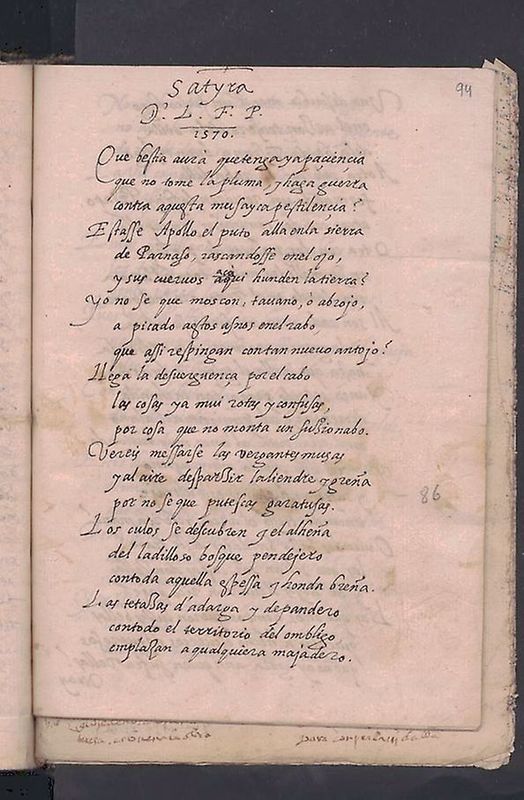 94
Satyra
D'. L. F. P.
1570.
Que bestia aurà que tenga ya paciencia
que no tome la pluma, y haga guerra
contra aquesta musayca pestilencia?
Estasse Apollo el puto alla en la sierra
de Parnaso, rascandosse en el ojo,
y sus cuervos aqui hunden la tierra?
Yo no se que moscon, tauano, ò abrojo,
a picado aestos asnos en el rabo,
que assi respingan con tan nuevo antojo?
llega la desuerguença por el cabo
las cosas ya mui rotas y confusas,
por cosa que no monta un
Vereis messarse las vergantes musas
y al aire la liendre y greña
por no se que putescas garatusas.
86
Los culos se descubren y el alheña
del ladilloso bosque pendejero
con toda aquella espessa y honda breña.
Las tetazas d'adarga y de pandero
con todo el territorio del ombligo
emplazan a qualquiera majadero.
para